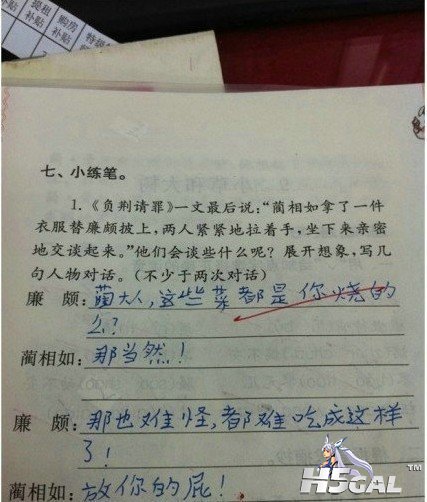 提租
补贴
购房
补贴
特级
七、小练笔。
1.《负荆请罪》一文最后说:“蔺相如拿了一件
衣服替廉颇披上,两人紧紧地拉着手,坐下来亲密
地交谈起来。”他们会谈些什么呢?展开想象,写几
句人物对话。(不少于两次对话)
廉 颇:蔺大人,这些菜都是你烧的
么?
蔺相如:那当然!
廉 颇:那也难怪,都难吃成这样
了!
蔺相如:放你的屁!
H5GAL
TM